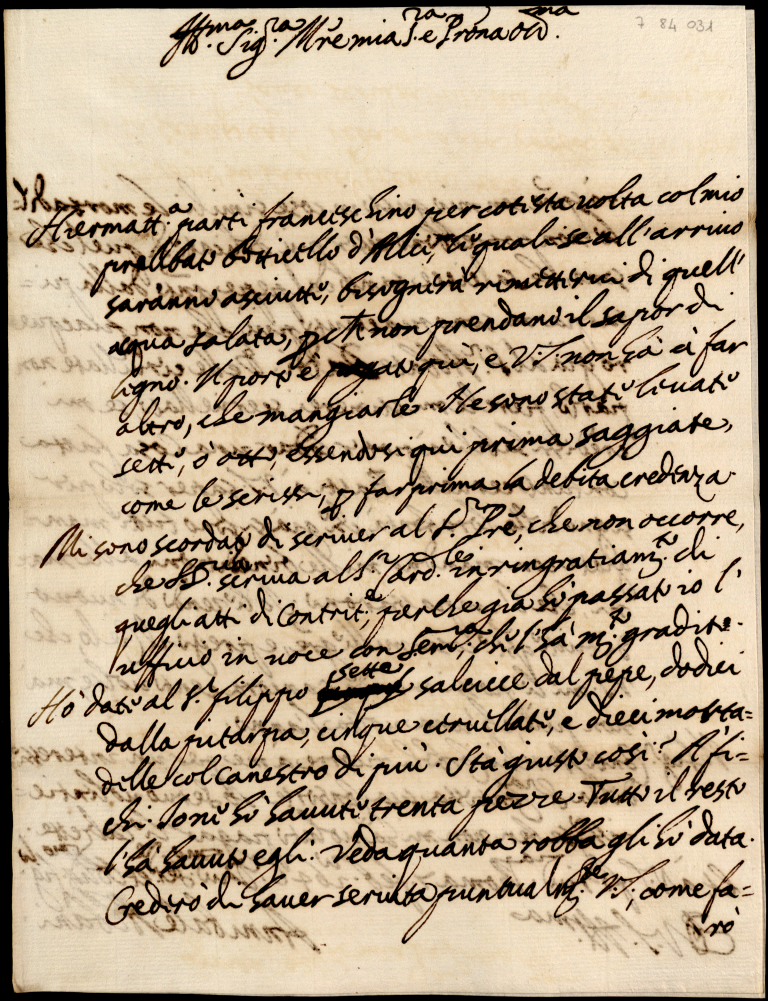 7 84 031
Ill.ma Sig.ra M're mia S.ra e P'rona Oss.ma
Hiermatt.a partì francischino per cotesta uolta col mio
prelibato botticello d'Alici, le quali se all'arriuo
saranno asciutte, bisognerà rimetterui di quell'
acqua salata, p'che non prendano il sapor di
legno. Il porto è pagato quì, e V.S. non hà à far
altro, che mangiarle. Ne sono state leuate
sette, ò otto, essendosi quì prima saggiate,
come le scrissi, p' far prima la debita credenza.
Mi sono scordato di scriuer al S.r P're, che non occorre,
che S.S. scriua al S.r Card.le in ringratiam.to di
quegli atti di Contrit.e, perche già hò passato io l'
ufficio in uoce con Sem.za, che l'hà m.to gradito.
Hò dato al S.r filippo sette salcicce dal pepe, dodici
dalla pitarpa, cinque ceruellate, e dieci morta=
delle col canestro di più. Stà giusto così? A' fi=
chi Io ne hò hauute trenta pezze. Tutto il resto
l'hà hauuto egli. Veda quanta robba gli hò data.
Crederò di hauer seruita puntualm.te V.S., come fa=
rò